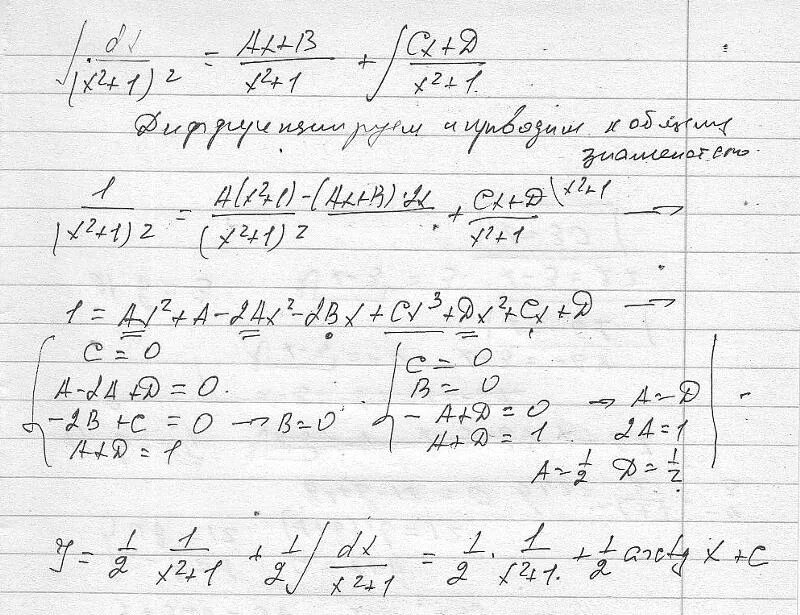 ∫ dx/(x²+1)² = (Ax+B)/(x²+1) + ∫ (Cx+D)/(x²+1)
Дифференцируем и приводим к общему
знаменателю.
1/(x²+1)² = (A(x²+1)-(Ax+B)·2x)/(x²+1)² + (Cx+D)/(x²+1) \x²+1 →
1 = Ax²+A-2Ax²-2Bx+Cx³+Dx²+Cx+D →
C = 0
A-2A+D = 0
-2B+C = 0 → B=0
A+D = 1
C = 0
B = 0
-A+D = 0 → A=D
A+D = 1 2A=1
A=1/2 D=1/2
J = 1/2 1/(x²+1) + 1/2 ∫ dx/(x²+1) = 1/2 · 1/(x²+1) + 1/2 arctg x + C